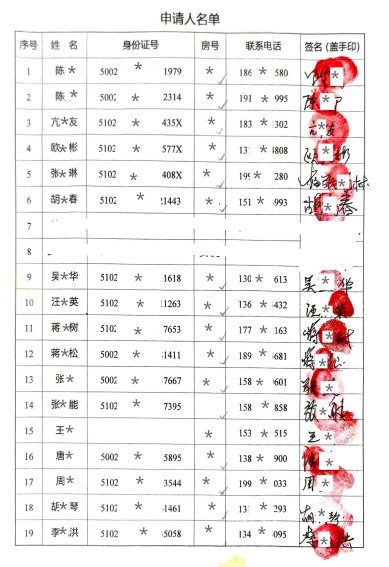 申请人名单
序号 姓 名 身份证号 房号 联系电话 签名（盖手印）
1 陈* 5002 * 1979 * 186 * 580
2 陈* 5002 * 2314 * 191 * 995
3 亢*友 5102 * 435X * 183 * 302
4 欧*彬 5102 * 577X * 13 * 4808
5 张*琳 5002 * 408X * 199 * 280
6 胡*春 5102 * 21443 * 151 * 993
7
8
9 吴*华 5102 * 1618 * 130 * 613 吴*华
10 汪*英 5102 * 1263 * 136 * 432 汪*
11 蒋*树 5102 * 7653 * 177 * 163 蒋*树
12 蒋*松 5002 * 1411 * 189 * 681 蒋*
13 张* 5002 * 7667 * 158 * 601 张*
14 张*能 5102 * 7395 158 * 858 张*
15 王* * 153 * 515 王*
16 唐* 5002 * 5895 * 138 * 900
17 周* 5102 * 3544 * 199 * 033 周*
18 胡*琴 5102 * 1461 * 13 * 293 胡*琴
19 李*洪 5102 * 5058 * 134 * 095 李*洪